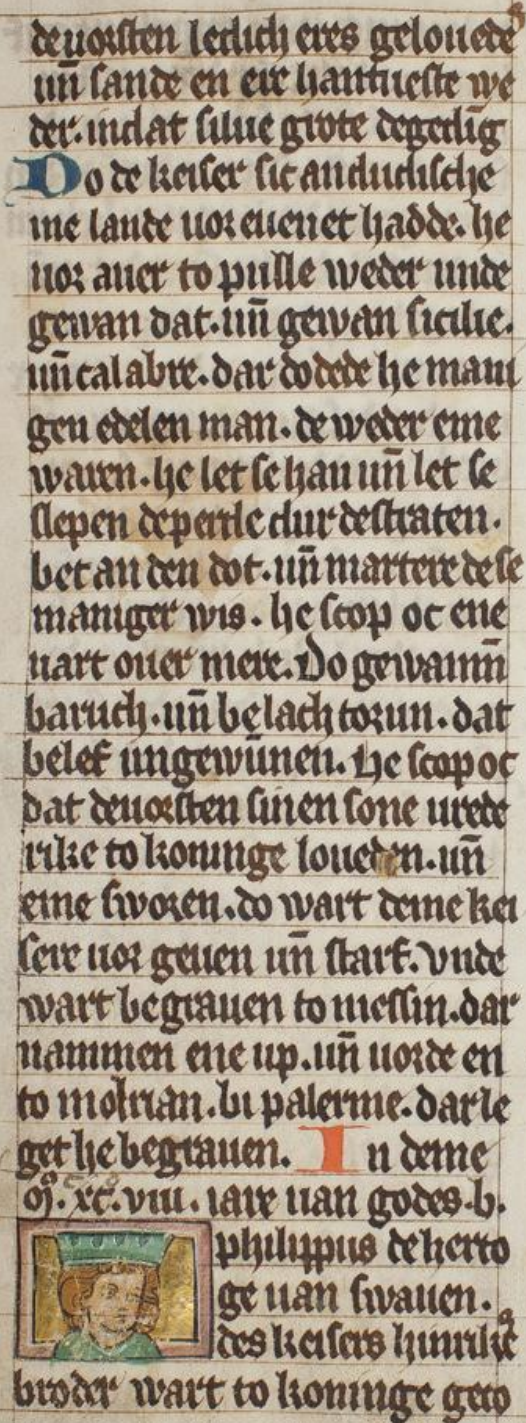 de uorsten ledich eres gelouede
un̄ sande en ere hantueste we
der. in dat silue grote degedig
Do de keiser sic an dudische
me lande uor euenet hadde. he
uor auer to pulle weder unde
gewan dat. un̄ gewan sicilie.
un̄ calabre. dar dodede he mani
gen edelen man. de weder eme
waren. he let se han un̄ let se
slepen de perde dur de straten.
bet an den dot. un̄ marterede se
maniger wis. he scop oc ene
uart ouer mere. Do gewan m̄
baruch. un̄ belach torun. dat
belef ungewūnen. He scop oc
dat de uorsten sinen sone urede
rike to koninge loueden. un̄
eme sworen. do wart deme kei
sere uor geuen un̄ starf. vnde
wart begrauen to messin. dar
nammen ene up. un̄ uorde en
to monrian. bi palerme. dar le
get he begrauen. In deme
ꝏ. xc. viii. iare uan godes. b.
philippus de herto
ge uan swauen.
des keisers hinrikes
broder wart to koninge geco